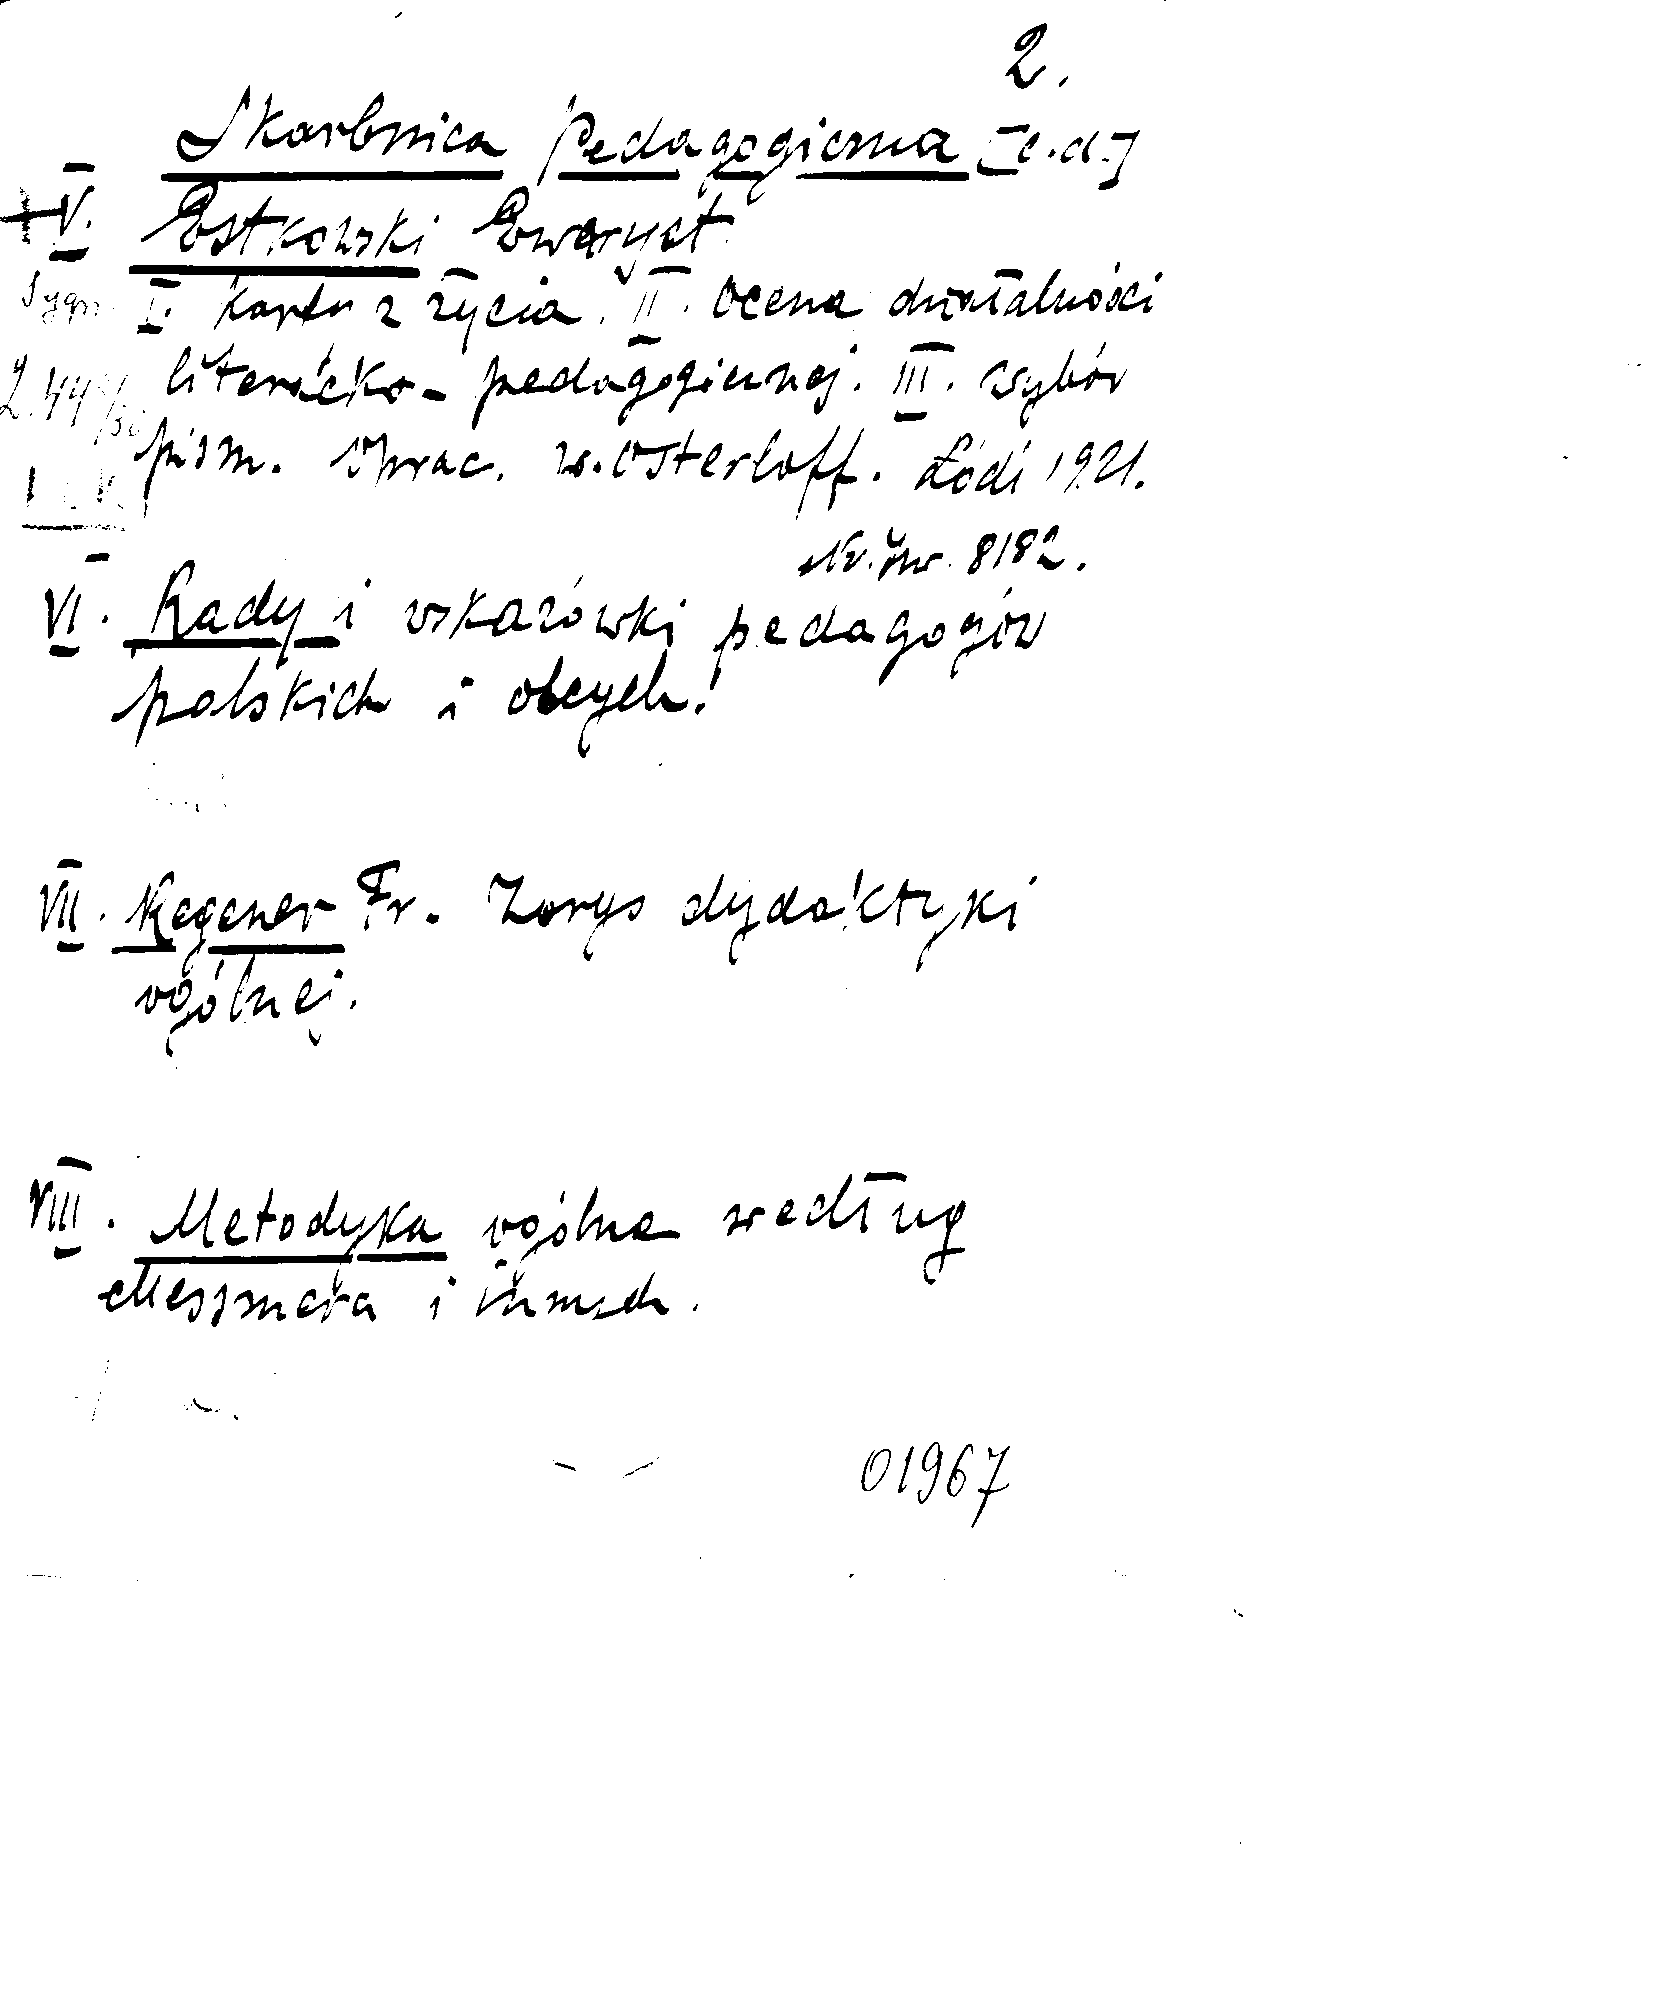 2.
Skarbnica Pedagogiczna [c.d.]
+ V. Estkowski Ewaryst
Sygn. I. Karta z życia. II. Ocena działalności
literacko-pedagogicznej. III. Wybór
pism. Oprac. W. Osterloff. Łódź 1921.
Nr. inw. 8182.
VI. Rady i wskazówki pedagogów
polskich i obcych.
VII. Regener Fr. Zarys dydaktyki
ogólnej.
VIII. Metodyka ogólna według
Messmera i innych.
01967